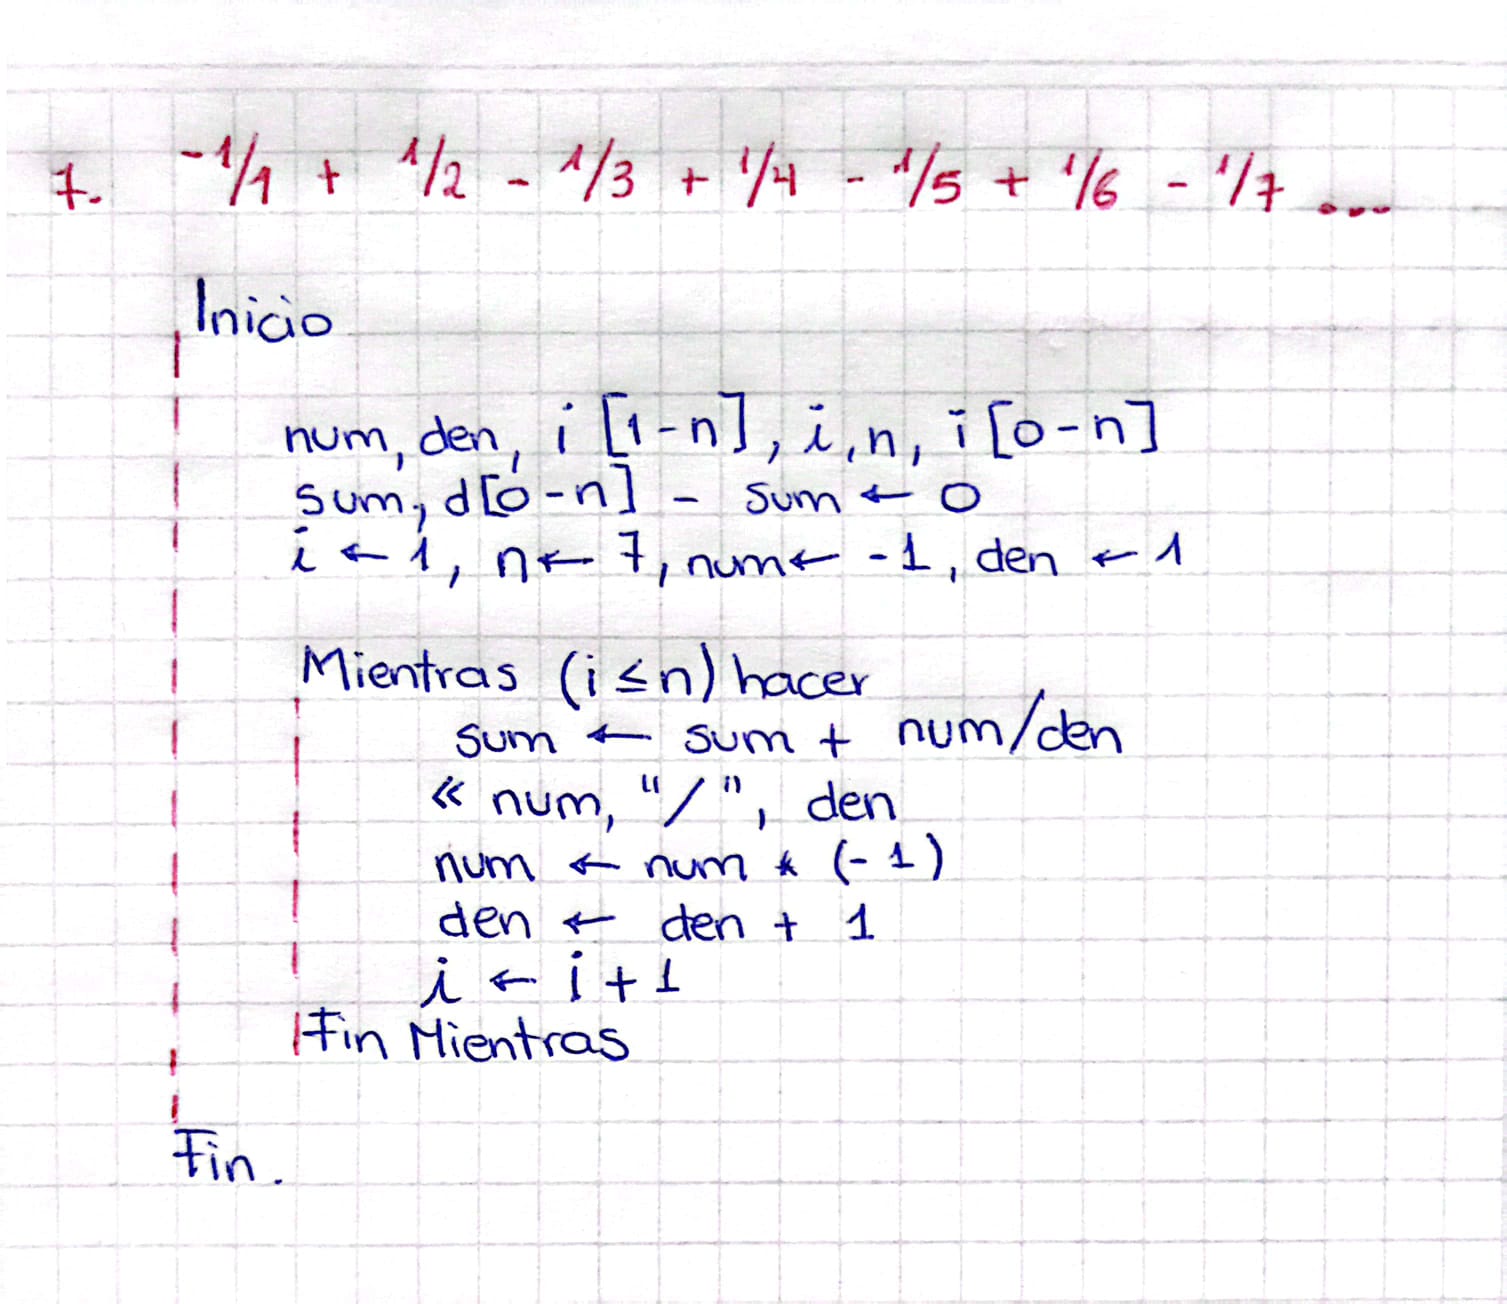 7. -1/1 + 1/2 - 1/3 + 1/4 - 1/5 + 1/6 - 1/7 ...
Inicio
num, den, i [1-n], i, n, i [0-n]
sum, d[0-n] - sum ← 0
i ← 1, n ← 7, num ← -1, den ← 1
Mientras (i ≤ n) hacer
sum ← sum + num/den
« num, "/", den
num ← num * (-1)
den ← den + 1
i ← i + 1
Fin Mientras
Fin.